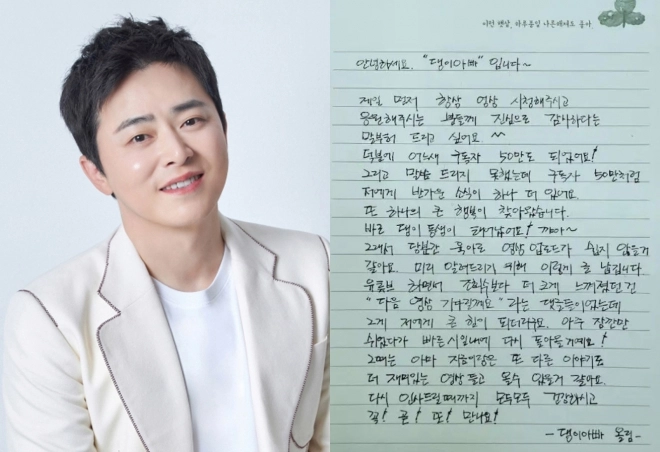 이런 행상, 하루종일 나른해져도 좋아.
안녕하세요. "댕이아빠" 입니다~
제일 먼저 항상 영상 시청해주시고
응원해주시는 분들께 진심으로 감사하다는
말부터 드리고 싶어요. ^^
덕분에 어느새 구독자 50만도 되었어요!
그리고 말씀 드리지 못했는데 구독자 50만처럼
저에게 반가운 소식이 하나 더 있어요.
또 하나의 큰 행복이 찾아왔습니다.
바로 댕이 동생이 태어났어요! 꺄아~
그래서 당분간 육아로 영상 업로드가 쉽지 않을거
같아요. 미리 알려드리기 위해 이렇게 글 남깁니다
유튜브 하면서 조회수보다 더 크게 느껴졌던 건
"다음 영상 기다릴게요" 라는 댓글들이었는데
그게 저에게 큰 힘이 되더라구요. 아주 잠깐만
쉬었다가 빠른시일내에 다시 돌아올게요!
그때는 아마 지금이랑은 또 다른 이야기로
더 재미있는 영상 들고 올수 있을거 같아요.
다시 인사드릴때까지 모두모두 건강하시고
꼭! 곧! 또! 만나요!
- 댕이아빠 올림 -